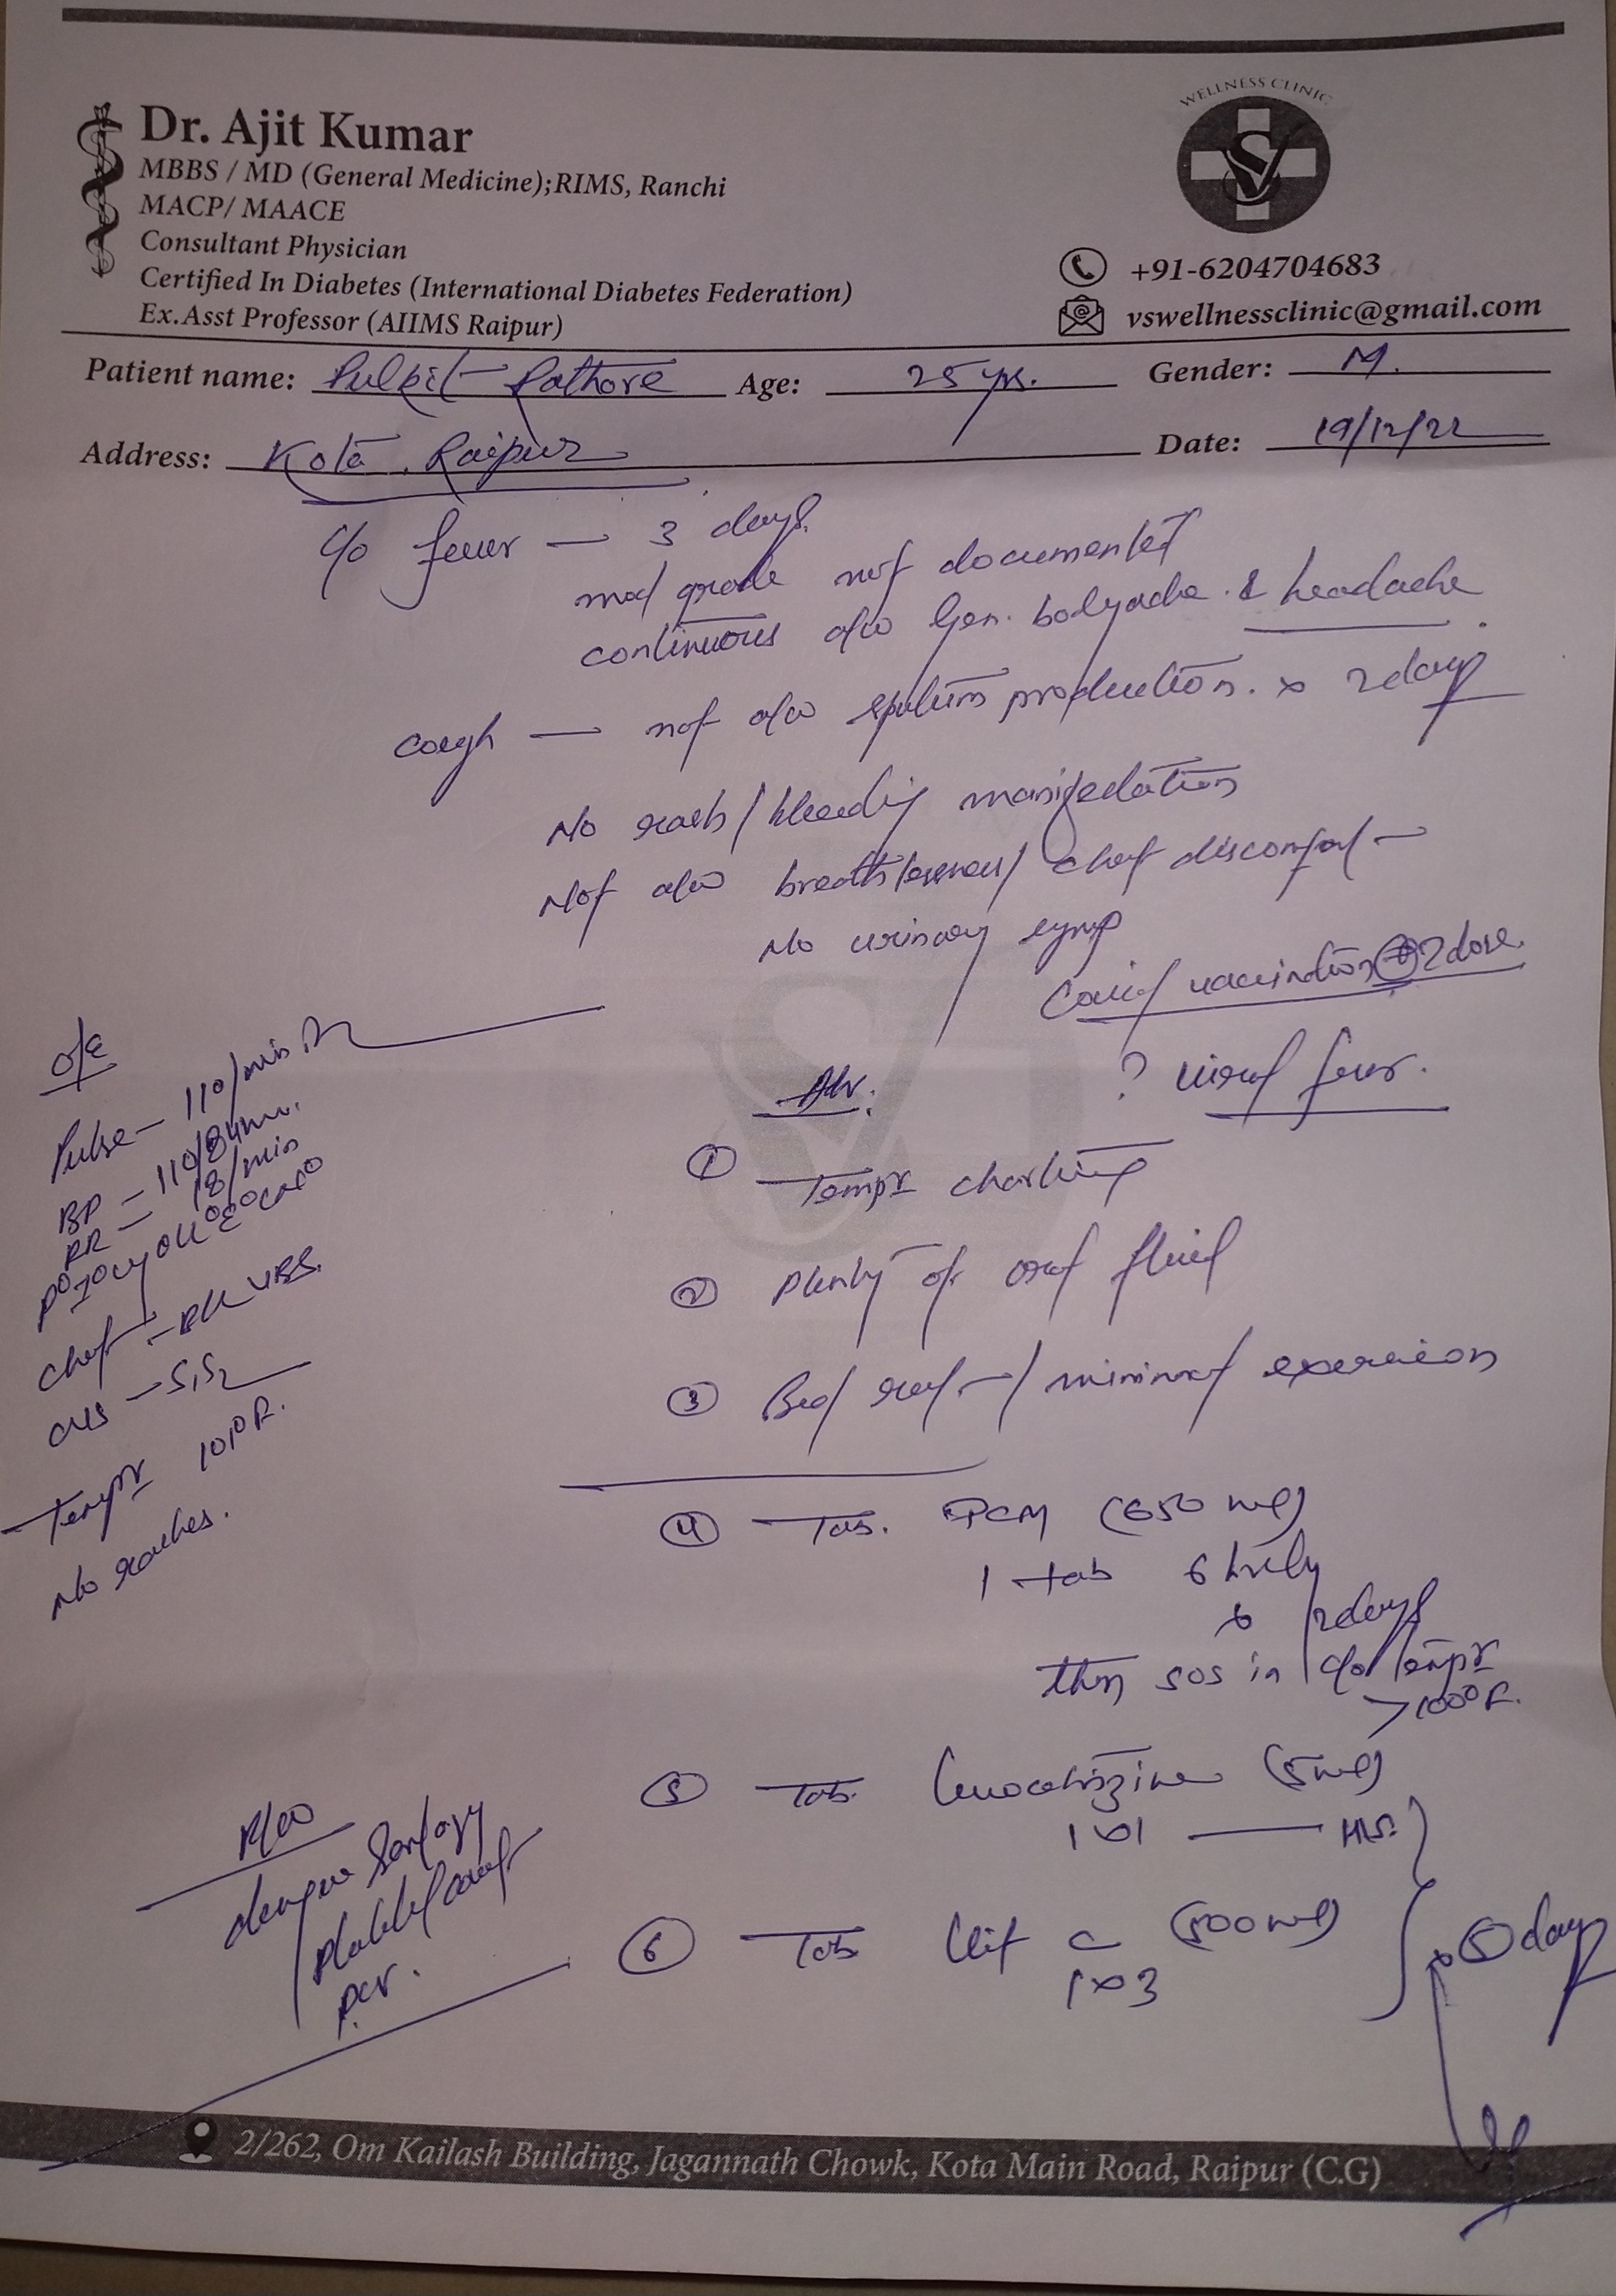 Dr. Ajit Kumar
MBBS / MD (General Medicine);RIMS, Ranchi
MACP/ MAACE
Consultant Physician
Certified In Diabetes (International Diabetes Federation)
Ex.Asst Professor (AIIMS Raipur)
WELLNESS CLINIC
+91-6204704683
vswellnessclinic@gmail.com
Patient name: Pulkit Rathore Age: 25 yrs. Gender: M.
Address: Kota, Raipur Date: 19/12/22
c/o fever — 3 days.
mod grade not documented
continuous a/w Gen. bodyache & headache.
cough — not a/w sputum production. x 2days
No rash/bleeding manifestation
Not a/w breathlessness/ chest discomfort
No urinary symp
Covid vaccination ⊕ 2 dose.
? viral fever.
o/e
Pulse — 110/min
BP — 110/84
RR — 18/min
Chest — VBS.
CVS — S1S2
Tempr 101°F.
No rashes.
Adv.
① Tempr charting
② Plenty of oral fluid
③ Bed rest / minimal exersion
④ Tab. PCM (650 mg)
1 tab 6 hrly
x 2days
then sos in c/o tempr
>100°F.
⑤ Tab. levocetrizine (5mg)
1x1 — HS.
⑥ Tab C (500mg)
1x3
x ⑤ day
R/w
dengue serology
platelet count
pcv.
2/262, Om Kailash Building, Jagannath Chowk, Kota Main Road, Raipur (C.G)